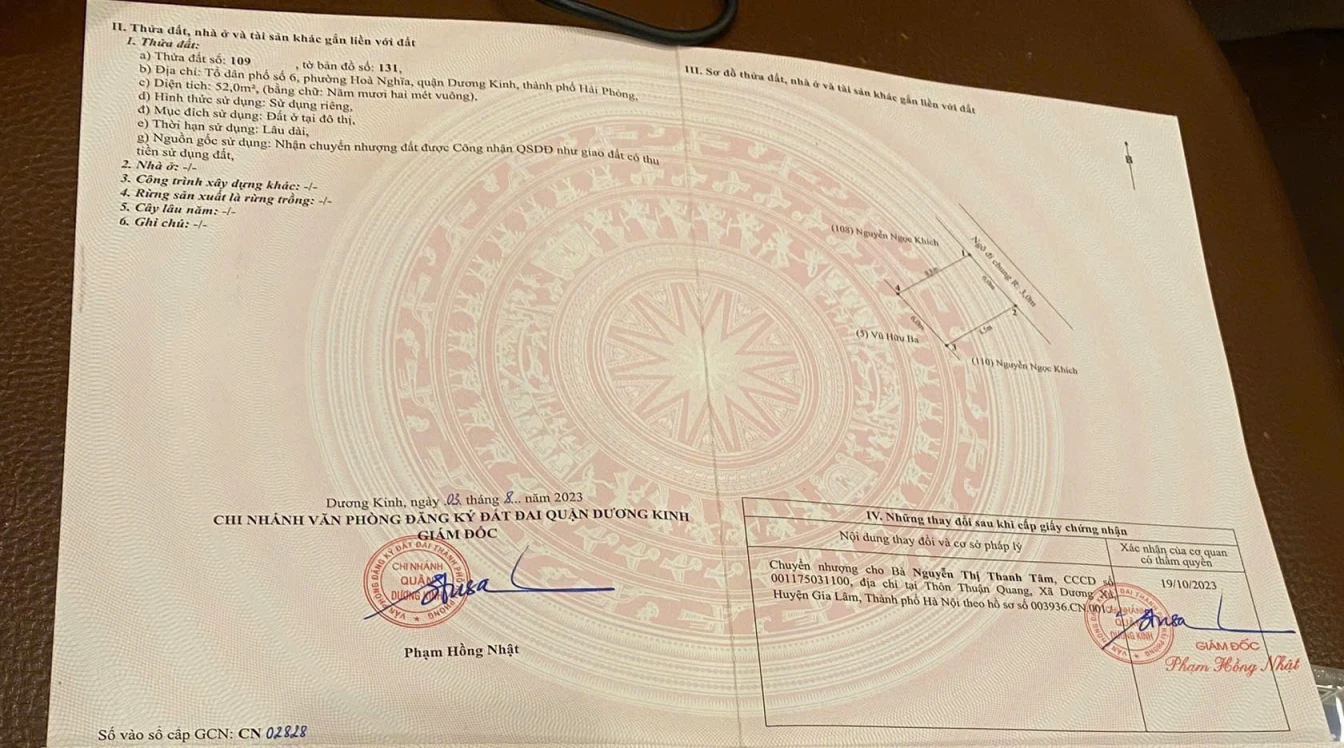 II. Thửa đất, nhà ở và tài sản khác gắn liền với đất
1. Thửa đất:
a) Thửa đất số: 109 , tờ bản đồ số: 131,
b) Địa chỉ: Tổ dân phố số 6, phường Hoà Nghĩa, quận Dương Kinh, thành phố Hải Phòng,
c) Diện tích: 52,0m², (bằng chữ: Năm mươi hai mét vuông),
d) Hình thức sử dụng: Sử dụng riêng,
đ) Mục đích sử dụng: Đất ở tại đô thị,
e) Thời hạn sử dụng: Lâu dài,
g) Nguồn gốc sử dụng: Nhận chuyển nhượng đất được Công nhận QSDĐ như giao đất có thu
tiền sử dụng đất,
2. Nhà ở: -/-
3. Công trình xây dựng khác: -/-
4. Rừng sản xuất là rừng trồng: -/-
5. Cây lâu năm: -/-
6. Ghi chú: -/-
Dương Kinh, ngày 03 tháng 8... năm 2023
CHI NHÁNH VĂN PHÒNG ĐĂNG KÝ ĐẤT ĐAI QUẬN DƯƠNG KINH
GIÁM ĐỐC
VĂN PHÒNG ĐĂNG KÝ ĐẤT ĐAI THÀNH PHỐ HẢI PHÒNG
CHI NHÁNH
QUẬN
DƯƠNG KINH
Phạm Hồng Nhật
Số vào sổ cấp GCN: CN 02828
III. Sơ đồ thửa đất, nhà ở và tài sản khác gắn liền với đất
B
(108) Nguyễn Ngọc Khích
Ngõ đi chung R: 3,0m
1
4
6,0m
2
6,0m
3
(5) Vũ Hữu Ba
(110) Nguyễn Ngọc Khích
IV. Những thay đổi sau khi cấp giấy chứng nhận
Nội dung thay đổi và cơ sở pháp lý
Xác nhận của cơ quan
có thẩm quyền
Chuyển nhượng cho Bà Nguyễn Thị Thanh Tâm, CCCD số
001175031100, địa chỉ tại Thôn Thuận Quang, Xã Dương Xá,
Huyện Gia Lâm, Thành phố Hà Nội theo hồ sơ số 003936.CN.001
19/10/2023
CHI NHÁNH
QUẬN
DƯƠNG KINH
GIÁM ĐỐC
Phạm Hồng Nhật